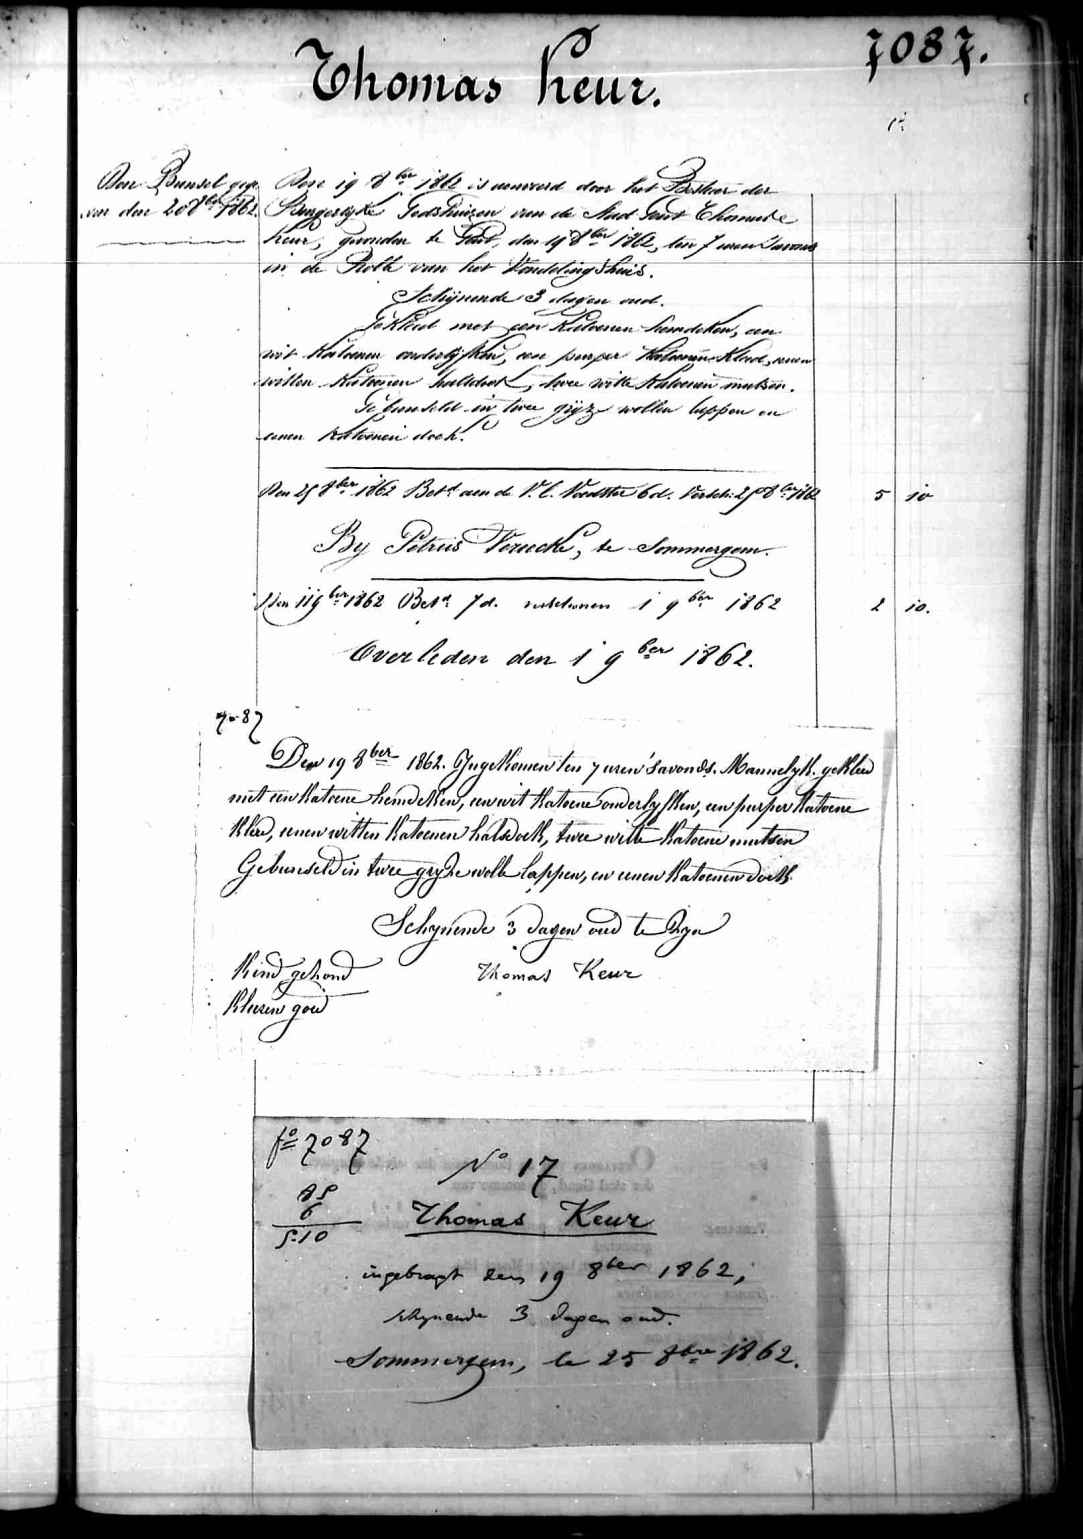 7087.
Thomas Keur.
Den Bunsel gege-
ven den 20 8ber 1862.
Den 19 8ber 1862 is aanveerd door het Bestuer der
Burgerlyke Godshuizen van de Stad Gent Thomas
Keur, gevonden te Gent, den 19 8ber 1862, ten 7 uren 'savonds
in de Rolle van het Vondelingshuis.
Schijnende 3 dagen oud.
Gekleed met een Katoenen hemdeken, een
wit Katoenen onderlyfken, een purper Katoenen Kleed, eenen
witten Katoenen halsdoek, twee witte Katoenen mutsen.
Gebunseld in twee gryze wollen lappen en
eenen Katoenen doek.
Den 25 8ber 1862 Betd aen de V. C. Voedster 6 d. Versch. 25 8ber 1862 5 10
By Petrus Vereecke, te Sommergem.
Den 11 9ber 1862 Betd 7 d. verschenen 1 9ber 1862 2 10.
Overleden den 1 9ber 1862.
7087
Den 19 8ber 1862. Ingekomen ten 7 uren 'savonds. Mannelyk. gekleed
met een Katoene hemdeken, een wit Katoene onderlyfken, een purper Katoene
Kleed, eenen witten Katoenen halsdoek, twee witte Katoene mutsen
Gebunseld in twee gryze wolle lappen, en eenen Katoenen doek.
Schynende 3 dagen oud te Zyn
Kind gezond Thomas Keur
Kleeren goed
fo 7087
No 17
85
6
5.10
Thomas Keur
ingebragt den 19 8ber 1862,
schynende 3 dagen oud.
Sommergem, le 25 8bre 1862.